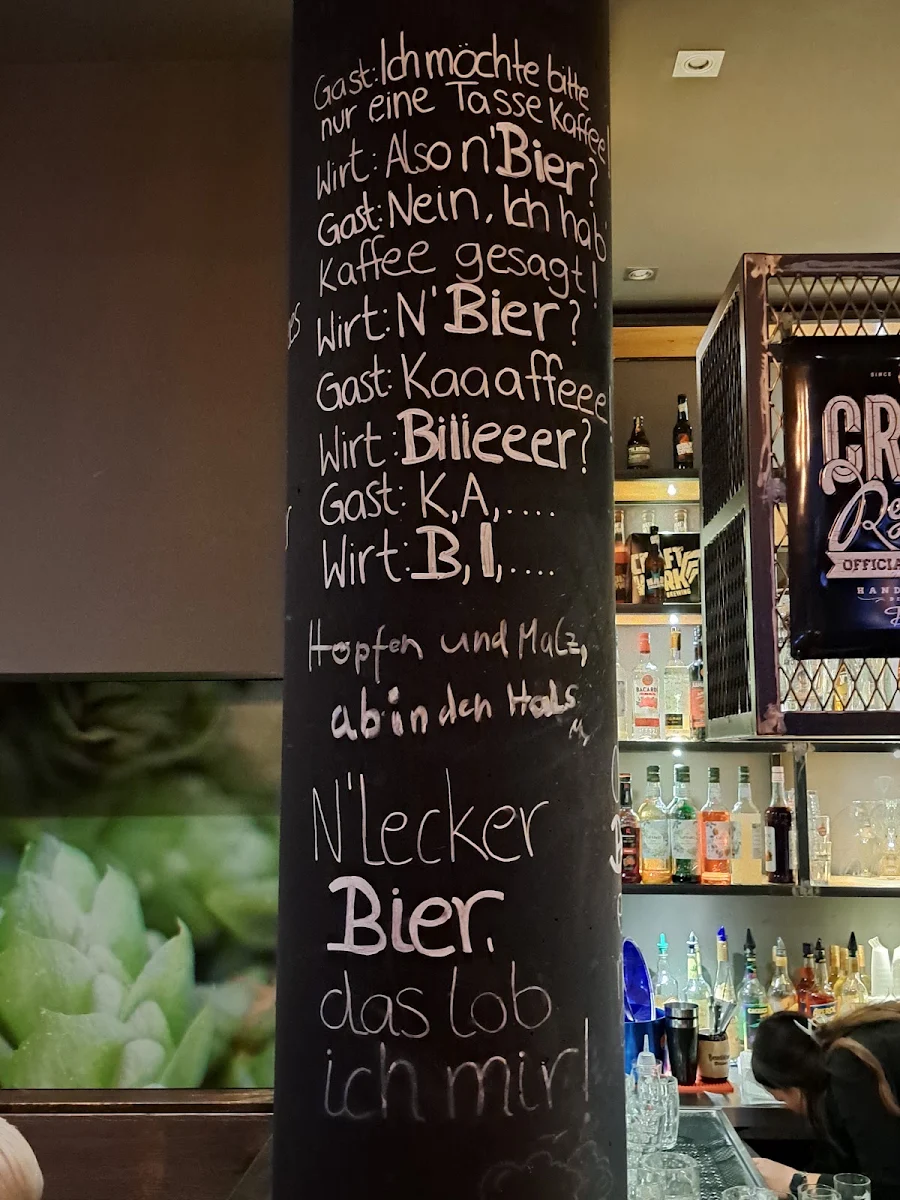 Gast: Ich möchte bitte
nur eine Tasse Kaffee!
Wirt: Also n' Bier?
Gast: Nein, Ich hab'
Kaffee gesagt!
Wirt: N' Bier?
Gast: Kaaaffeee
Wirt: Biiieeer?
Gast: K,A,....
Wirt: B,I,....
Hopfen und Malz,
ab in den Hals
N'Lecker
Bier.
das lob
ich mir!
SINCE
CR
OFFICIA
HAND
BACARDI